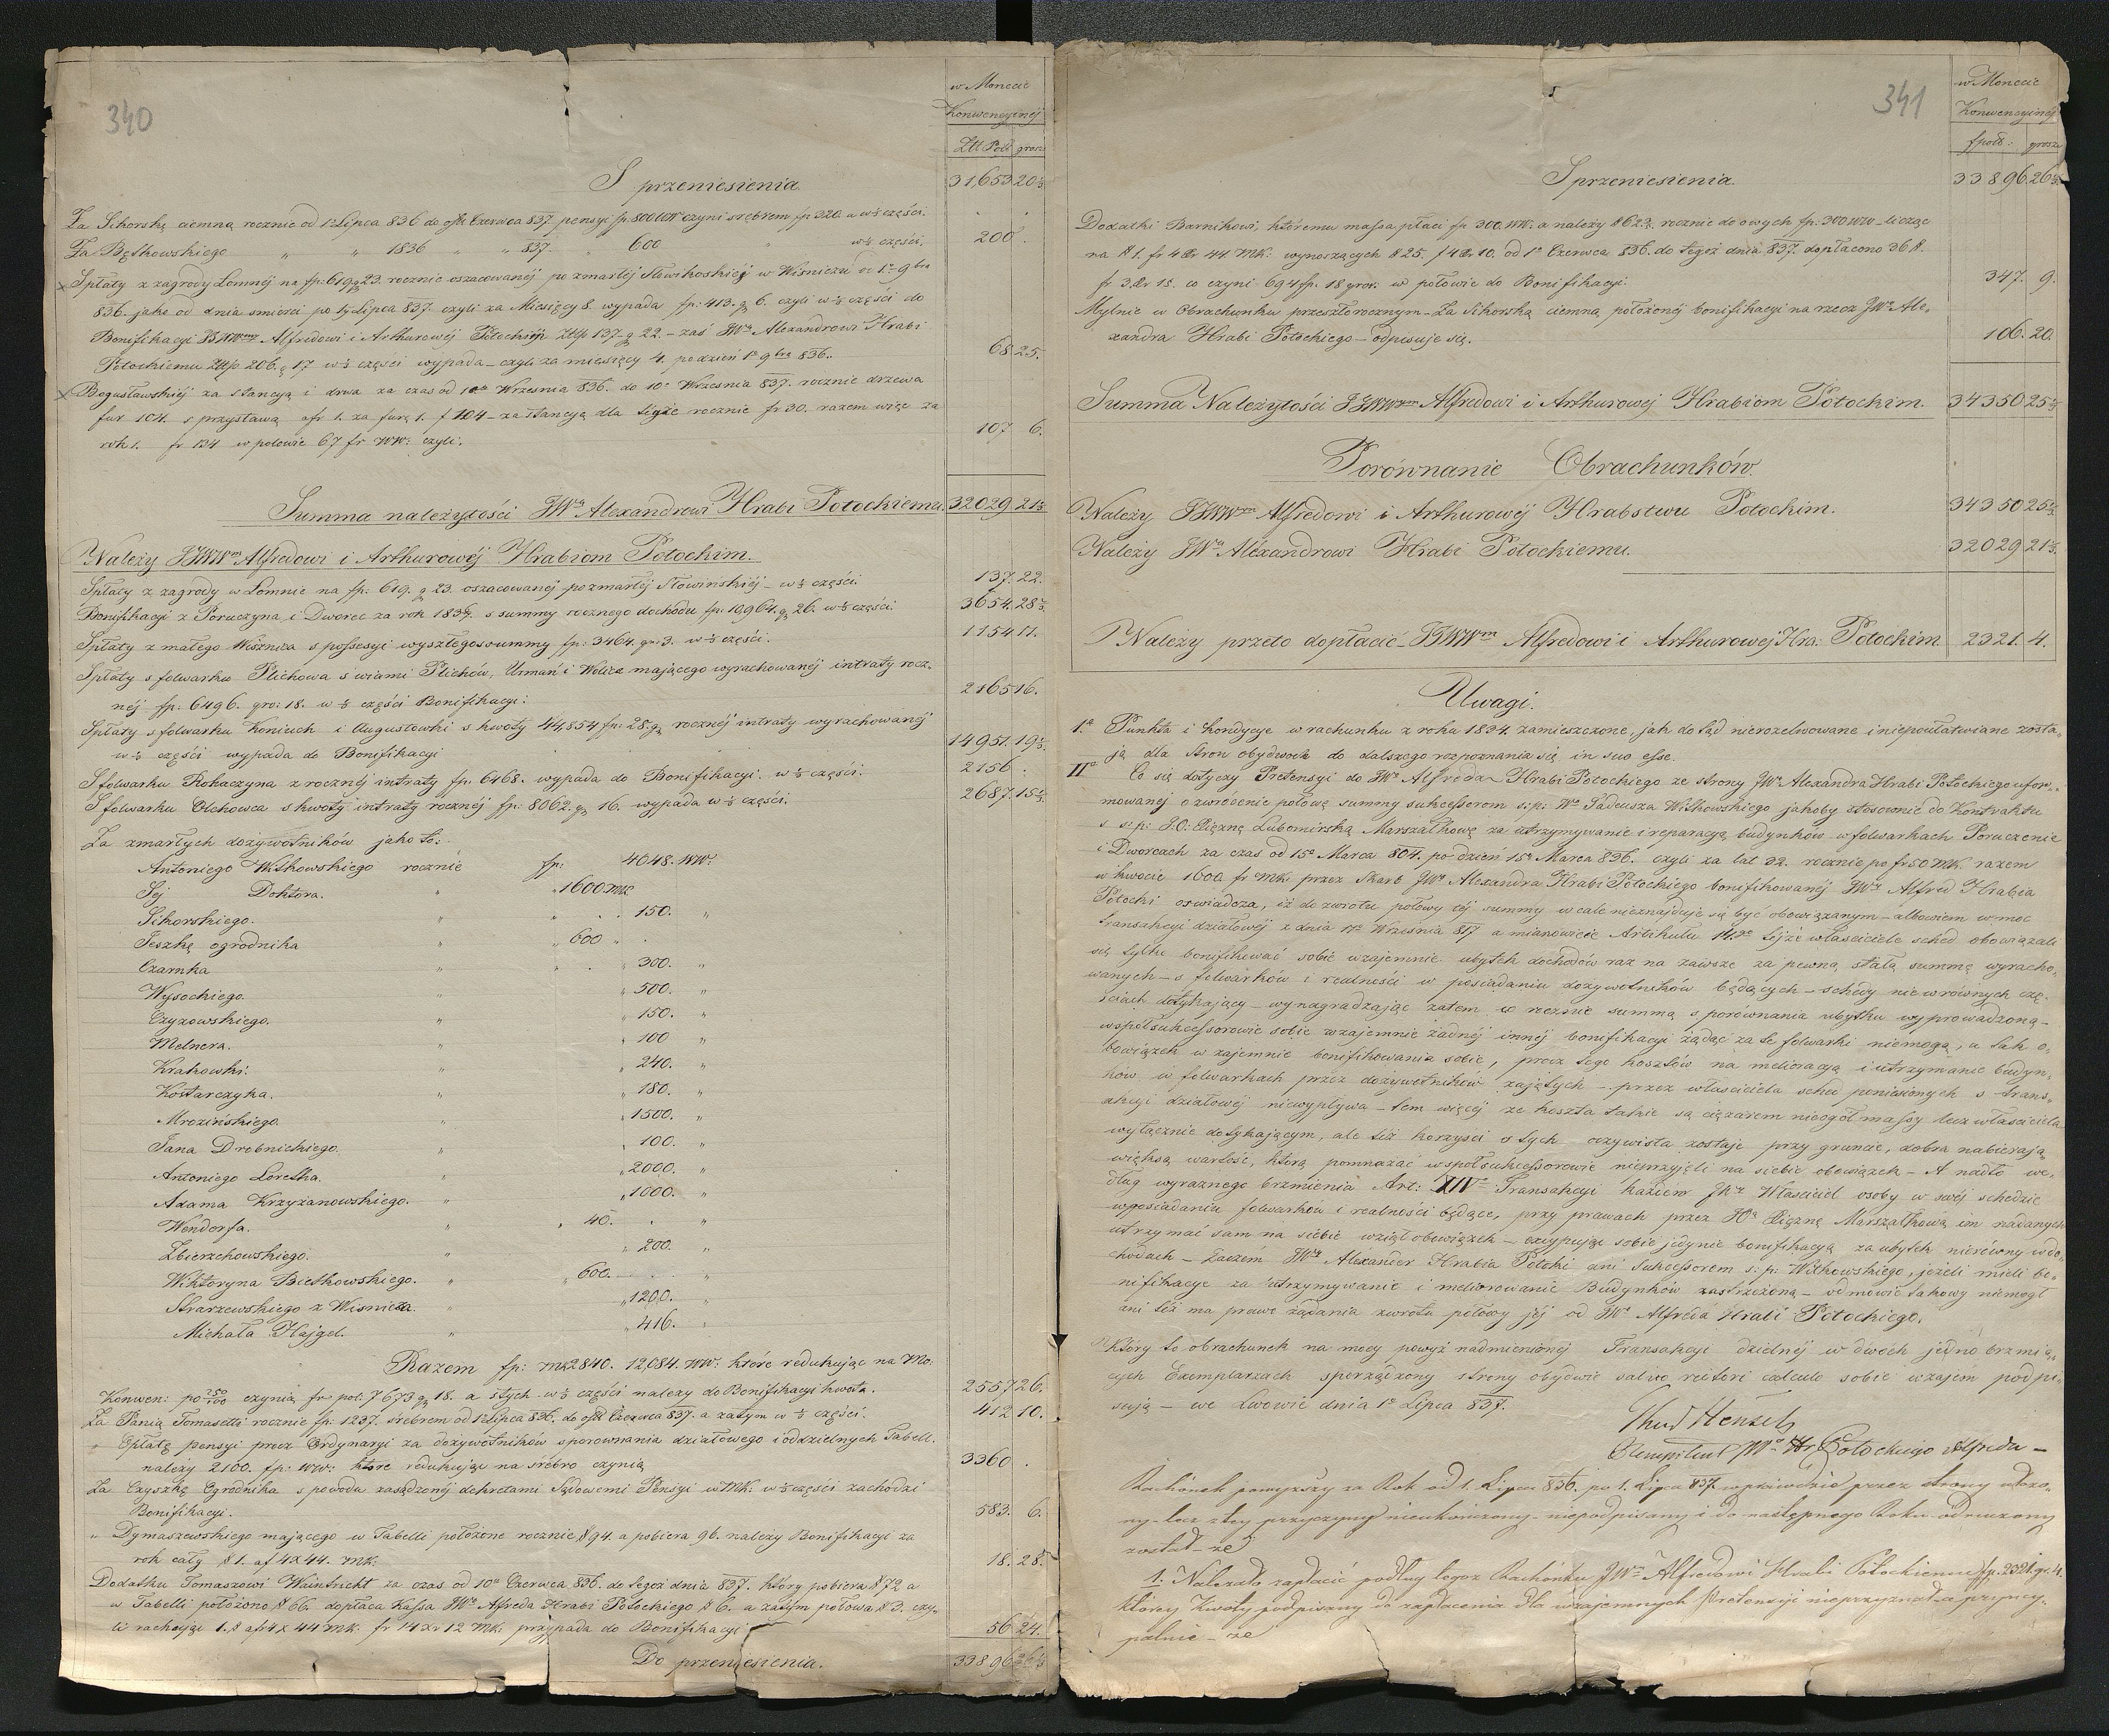 340
w Monecie
Konwencyjnéj
Złt Pols grosze
S przeniesienia. 31,653 20⅓
Za Sikorską ciemną rocznie od 1º Lipca 836 do ostº Czerwca 837. pensyi fp. 800 WW czyni srebrem fp 320. a w ½ części. . .
Za Bętkowskiego „ „ 1836 „ „ 837. „ 600 „ w ⅓ części. 200 .
Spłaty z zagrody Łomnéj na fp: 619 g 23. rocznie oszacowanéj po zmarłéj Słowikoskiéj w Wiśniczu od 1º 9bra
836. jako od dnia śmierci po 1y Lipca 837. czyli za Miesięcy 8. wypada fp: 413. g 6. czyli w ⅓ części do
Bonifikacyi JJWWm Alfredowi i Arthurowéj Potockim Złtp 137. g 22 – zaś JWu Alexandrowi Hrabi
Potockiemu Złtp 206. g 17 w ⅓ części wypada – czyli za miesięcy 4. po dzień 1º 9bra 836. 68 25.
Bogusławskiéj za stancyą i drwa za czas od 10º Września 836. do 10º Września 837. rocznie drzewa
fur 104. s przystawą a fr 1. za furę 1. f 104 – za stancyą dla tegże rocznie fr 30. razem więc za
rok 1. fr 134 w połowie 67 fr WW: czyli. 107 6.
Summa należytości JWu Alexandrowi Hrabi Potockiemu. 32029. 21⅓
Należy JJWWm Alfredowi i Arthurowéj Hrabiom Potockim.
Spłaty z zagrody w Łomnie na fp: 619. g 23. oszacowanéj po zmarłéj Słowinskiéj – w ⅓ części. 137. 22.
Bonifikacyi z Poruczyna i Dworec za rok 1836/7. s summy rocznego dochodu fp: 10,964. g 26. w ⅓ części. 3654. 28⅔
Spłaty z małego Wiśnicza s possesyi wyszłego s summy fp: 3464. gr: 3. w ⅓ części. 1154 11.
Spłaty s folwarku Plichowa s wsiami Plichów, Urmań i Wolica mającego wyrachowanéj intraty rocz„
néj fp: 6496. gro: 18. w ⅓ części Bonifikacyi: 2165 16.
Spłaty s folwarku Koniuch i Augustowki s kwoty 44,854 fp: 28. g rocznéj intraty wyrachowanéj
w ⅓ części wypada do Bonifikacyi . . . 14951. 19⅓
S folwarku Rohaczyna z rocznéj intraty fp: 6468. wypada do Bonifikacyi. w ⅓ części. 2156 .
S folwarku Olchowca s kwoty intraty rocznéj fp: 8062. g 16. wypada w ⅓ części. 2687. 15⅓
Za zmarłych dożywotników jako to:
Antoniego Witkowskiego rocznie fp: 4048. WW:
Jéj Doktora. „ „ 1600. mk
Sikorskiego. „ „ . . 150. „
Jeszkę ogrodnika „ „ 600 „ .
Czarnka „ „ . „ 300. „
Wysockiego. „ „ 500. „
Czyzowskiego. „ „ 150. „
Melnera. „ „ 100 „
Krakowki. „ „ 240. „
Kostarczyka. „ „ 180. „
Mrozińskiego. „ „ 1500. „
Jana Drobnickiego. „ „ 100. „
Antoniego Loretka. „ 2000. „
Adama Krzyżanowskiego. „ „ 1000. „
Wendorfa. „ „ 40. . „
Zbierzchowskiego. „ „ 200. „
Wiktoryna Bietkowskiego. „ „ 600. . . „
Strarzewskiego z Wisnicza. „ „ 1200. „
Michała Hajgel. „ „ 416. „
Razem fp: mk 2840. 12,084. WW: które redukując na Mo:
Konwen: po 250/100 czynią fr pol: 7673 g 18. a z tych w ⅓ części należy do Bonifikacyi kwota. 2557 26.
Za Panią Tomasetti rocznie fp: 1237. srebrem od 1º Lipca 836. do ostº Czerwca 837. a zatym w ⅓ części. 412 10.
„ Opłatę pensyi prócz Ordynaryi za dożywotników s porownania działowego i oddzielnych Tabell.
należy 2100. fp: WW: które redukując na srebro czynią 3360 .
Za Czyszkę Ogrodnika s powodu zasądzonéj dekretami Sądowemi Pensyi w Mk: w ⅓ części zachodzi
Bonifikacyi. 583. 6.
„ Dymaszewskiego mającego w Tabelli położone rocznie # 94. a pobiera 96. należy Bonifikacyi za
rok cały # 1. a f 4 x 44. mk. 18. 28.
Dodatku Tomaszowi Waintricht za czas od 10º Czerwca 836. do tegoż dnia 837. który pobiera # 72 a
w Tabelli położono # 66. dopłaca Kassa JWo Alfreda Hrabi Potockiego # 6. a zatym połowa # 3. czy„
li rachując 1. # a f 4 x 44 mk. fr 14 xr 12 Mk: przypada do Bonifikacyi 56 24.
Do przeniesienia. 33896 26⅓
341
w Monecie
Konwencyjnéj
fpols: grosze
S przeniesienia. 33896. 26⅓
Dodatki Barnikowi, któremu massa płaci fp 300. WW. a należy # 62½. rocznie do owych fp: 300 WW – licząc
na # 1. fr 4 xr 44. mk: wynoszących # 25. f 4 xr 10. od 1º Czerwca 836. do tegoż dnia 837. dopłacono 36 #.
fr 3. xr 15. co czyni 694 fp. 18 gros: w połowie do Bonifikacyi: 347. 9.
Mylnie w Obrachunku przeszłorocznym – Za Sikorską ciemną położonéj bonifikacyi na rzecz JWo Ale„
xandra Hrabi Potockiego – odpisuje się. 106. 20.
Summa Należytości JJWWm Alfredowi i Arthurowéj Hrabiom Potockim. 34350 25⅓
Porównanie Obrachunków.
Należy JJWWm Alfredowi i Arthurowéj Hrabstwu Potockim. 34350 25⅓
Należy JWu Alexandrowi Hrabi Potockiemu. 32029 21⅓
Należy przeto dopłacić JJWWm Alfredowi i Arthurowéj Hra: Potockim. 2321. 4.
Uwagi.
1º Punkta i kondycye w rachunku z roku 1834. zamieszczone, jak do tąd nierozelwowane i niepoułatwiane zosta„
ją dla stron obydwoch do dalszego rozpoznania się in suo esse.
IIº Co się dotyczy Pretensyi do JWo Alfreda Hrabi Potockiego ze strony JWo Alexandra Hrabi Potockiego ufor„
mowanéj o zwrócenie połowę summy sukcessorom s: p: Wo Tadeusza Witkowskiego jakoby stósownie do Kontraktu
s s: p: J. O: Xiężnę Lubomirską Marszałkowę za utrzymywanie i reparacyą budynków w folwarkach Poruczenie
i Dworcach za czas od 15º Marca 804. po dzień 15º Marca 836. czyli za lat 32. rocznie po fr 50 Mk. razem
w kwocie 1600 fr Mk: przez Skarb JWo Alexandra Hrabi Potockiego bonifikowanéj JWy Alfred Hrabia
Potocki oswiadcza, iż do zwrotu połowy téj summy w cale nieznajduje się być obowiązanym – albowiem w moc
transakcyi działowéj z dnia 17º Września 817 a mianowicie Artikułu 14go tejże właściciele sched obowiązali
się tylko bonifikować sobie wzajemnie ubytek dochodów raz na zawsze za pewną stałą summę wyracho„
wanych – s folwarków i realności w posiadaniu dożywotników będących – schedy niewrównych czę„
ściach dotykający – wynagradzając zatem co rocznie summą s porównania ubytku wyprowadzoną –
współsukcessorowie sobie wzajemnie żadnéj innéj bonifikacyi żądać za te folwarki niemogą, a tak o„
bowiązek wzajemnie bonifikowania sobie, prócz tego kosztów na melioracyą i utrzymanie budyn„
ków w folwarkach przez dożywotników zajętych – przez właściciela sched poniesionych s trans„
akcyi działowéj niewypływa – tem więcéj że koszta takie są ciężarem nieogół massy lecz właściciela
wyłącznie dotykającym, ale też korzyści s tych oczywista zostaje przy gruncie, dobra nabierają
większą wartość, którą pomnażać współsukcessorowie nieprzyjęli na siebie obowiązek – A nadto we„
dług wyraznego brzmienia Art: XIVº Transakcyi każden JWy Właściciel osoby w swéj schedzie
w posiadaniu folwarków i realności będące, przy prawach przez JOº Xiężnę Marszałkową im nadanych
utrzymać sam na siebie wziął obowiązek – excypując sobie jedynie bonifikacyą za ubytek nierówny w do„
chodach – Zaczem JWy Alexander Hrabia Potocki ani Sukcessorom s: p: Witkowskiego, jeżeli mieli bo„
nifikacye za utrzymywanie i meliorowanie Budynków zastrzeżoną – odmówić takowy niemógł
ani też ma prawo żądania zwrotu połowy jéj od JWo Alfreda Hrabi Potockiego.
Który to obrachunek na mocy powyż nadmienionéj Transakcyi dzielnéj w dwoch jedno brzmią„
cych Exemplarzach sporządzony strony obydwie salvo reiteri calculo sobie wzajem podpi„
sują – we Lwowie dnia 1º Lipca 837.
Thad Henzel
Plenipotent JWo Hr Potockiego Alfreda –
Rachónek powyższy za Rok od 1. Lipca 836. po 1. Lipca 837. wprawdzie przez strony ułożo„
ny – lecz z tey przyczyny nieukończony – niepodpisany i do następnego Roku odroczony
został – że
1. Należało zapłacić podług tegoż Rachónku JWu Alfredowi Hrabi Potockiemu fp. 2321. gr. 4.
którey Kwoty podpisany do zapłacenia dla wzajemnych Pretensyi nieprzyznał – a pryncy„
palnie – że